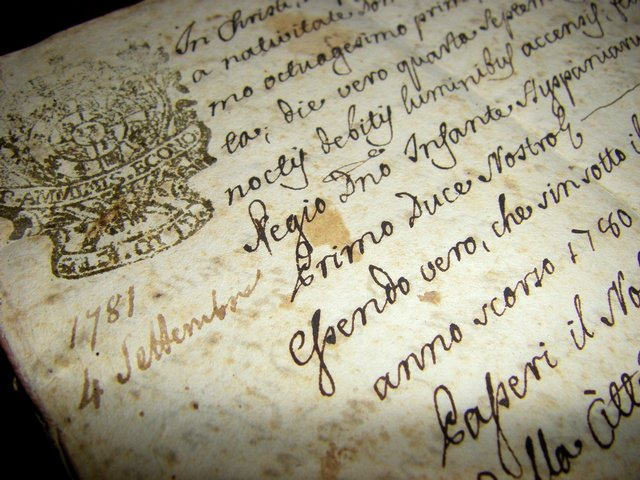 In Christi
a nativitate
mo octuagesimo primo
ta; die vero quarta Septem
noctis debitis luminibus accensis,
Regio Dno Infante Hyspaniaru
Primo Duce Nostro
Essendo vero, che sin sotto il
anno scorso 1780
Casperi il No
lla Att
1781
4 Settembre